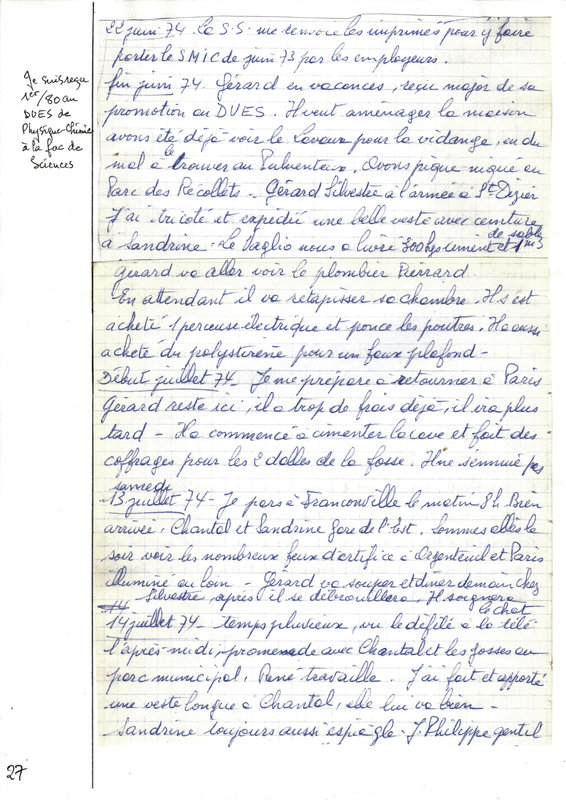 22 juin 74. La S.S. me renvoie les imprimés pour y faire
porter le SMIC de juin 73 par les employeurs.
fin juin 74. Gérard en vacances, reçu major de sa
promotion au DUES. Il veut aménager la maison
avons été déjà voir le Lavoux pour la vidange, eu du
mal à le trouver au Pulventeux. Avons pique niqué au
Parc des Récollets. Gérard Silvestre à l'armée à St Dizier
J'ai tricoté et expédié une belle veste avec ceinture
à Sandrine. Le Vaglio nous a livré 300 kgs ciment et 1 m3 de sable
Gérard va aller voir le plombier Pierrard.
En attendant il va retapisser sa chambre. Il s'est
acheté 1 perceuse électrique et ponce les poutres. Il a aussi
acheté du polystirène pour un faux plafond -
Début juillet 74 - Je me prépare à retourner à Paris
Gérard reste ici, il a trop de frais déjà, il ira plus
tard - Il a commencé à cimenter la cave et fait des
coffrages pour les 2 dalles de la fosse. Il ne s'ennuie pas
samedi
13 juillet 74 - Je pars à Franconville le matin 8h. Bien
arrivée, Chantal et Sandrine Gare de l'Est. Sommes allés le
soir voir les nombreux feux d'artifice à Argenteuil et Paris
illuminé au loin - Gérard va souper et diner demain chez
Silvestre, après il se débrouillera, Il soignera
le chat
14 juillet 74 - temps pluvieux, vu le défilé à la télé
l'après-midi, promenade avec Chantal et les gosses au
parc municipal, René travaille. J'ai fait et apporté
une veste longue à Chantal, elle lui va bien -
Sandrine toujours aussi espiègle - J. Philippe gentil
Je suis reçu
1er/80 au
DUES de
Physique-Chimie
à la fac de
Sciences
27